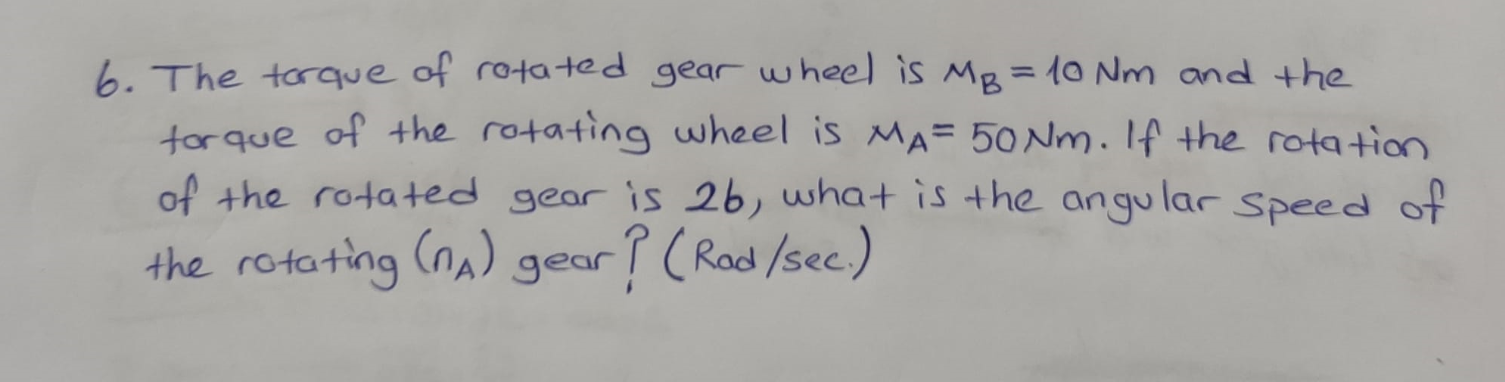 6. The torque of rotated gear wheel is MB = 10 Nm and the
torque of the rotating wheel is MA = 50 Nm. If the rotation
of the rotated gear is 26, what is the angular speed of
the rotating (nA) gear? (Rad/sec.)